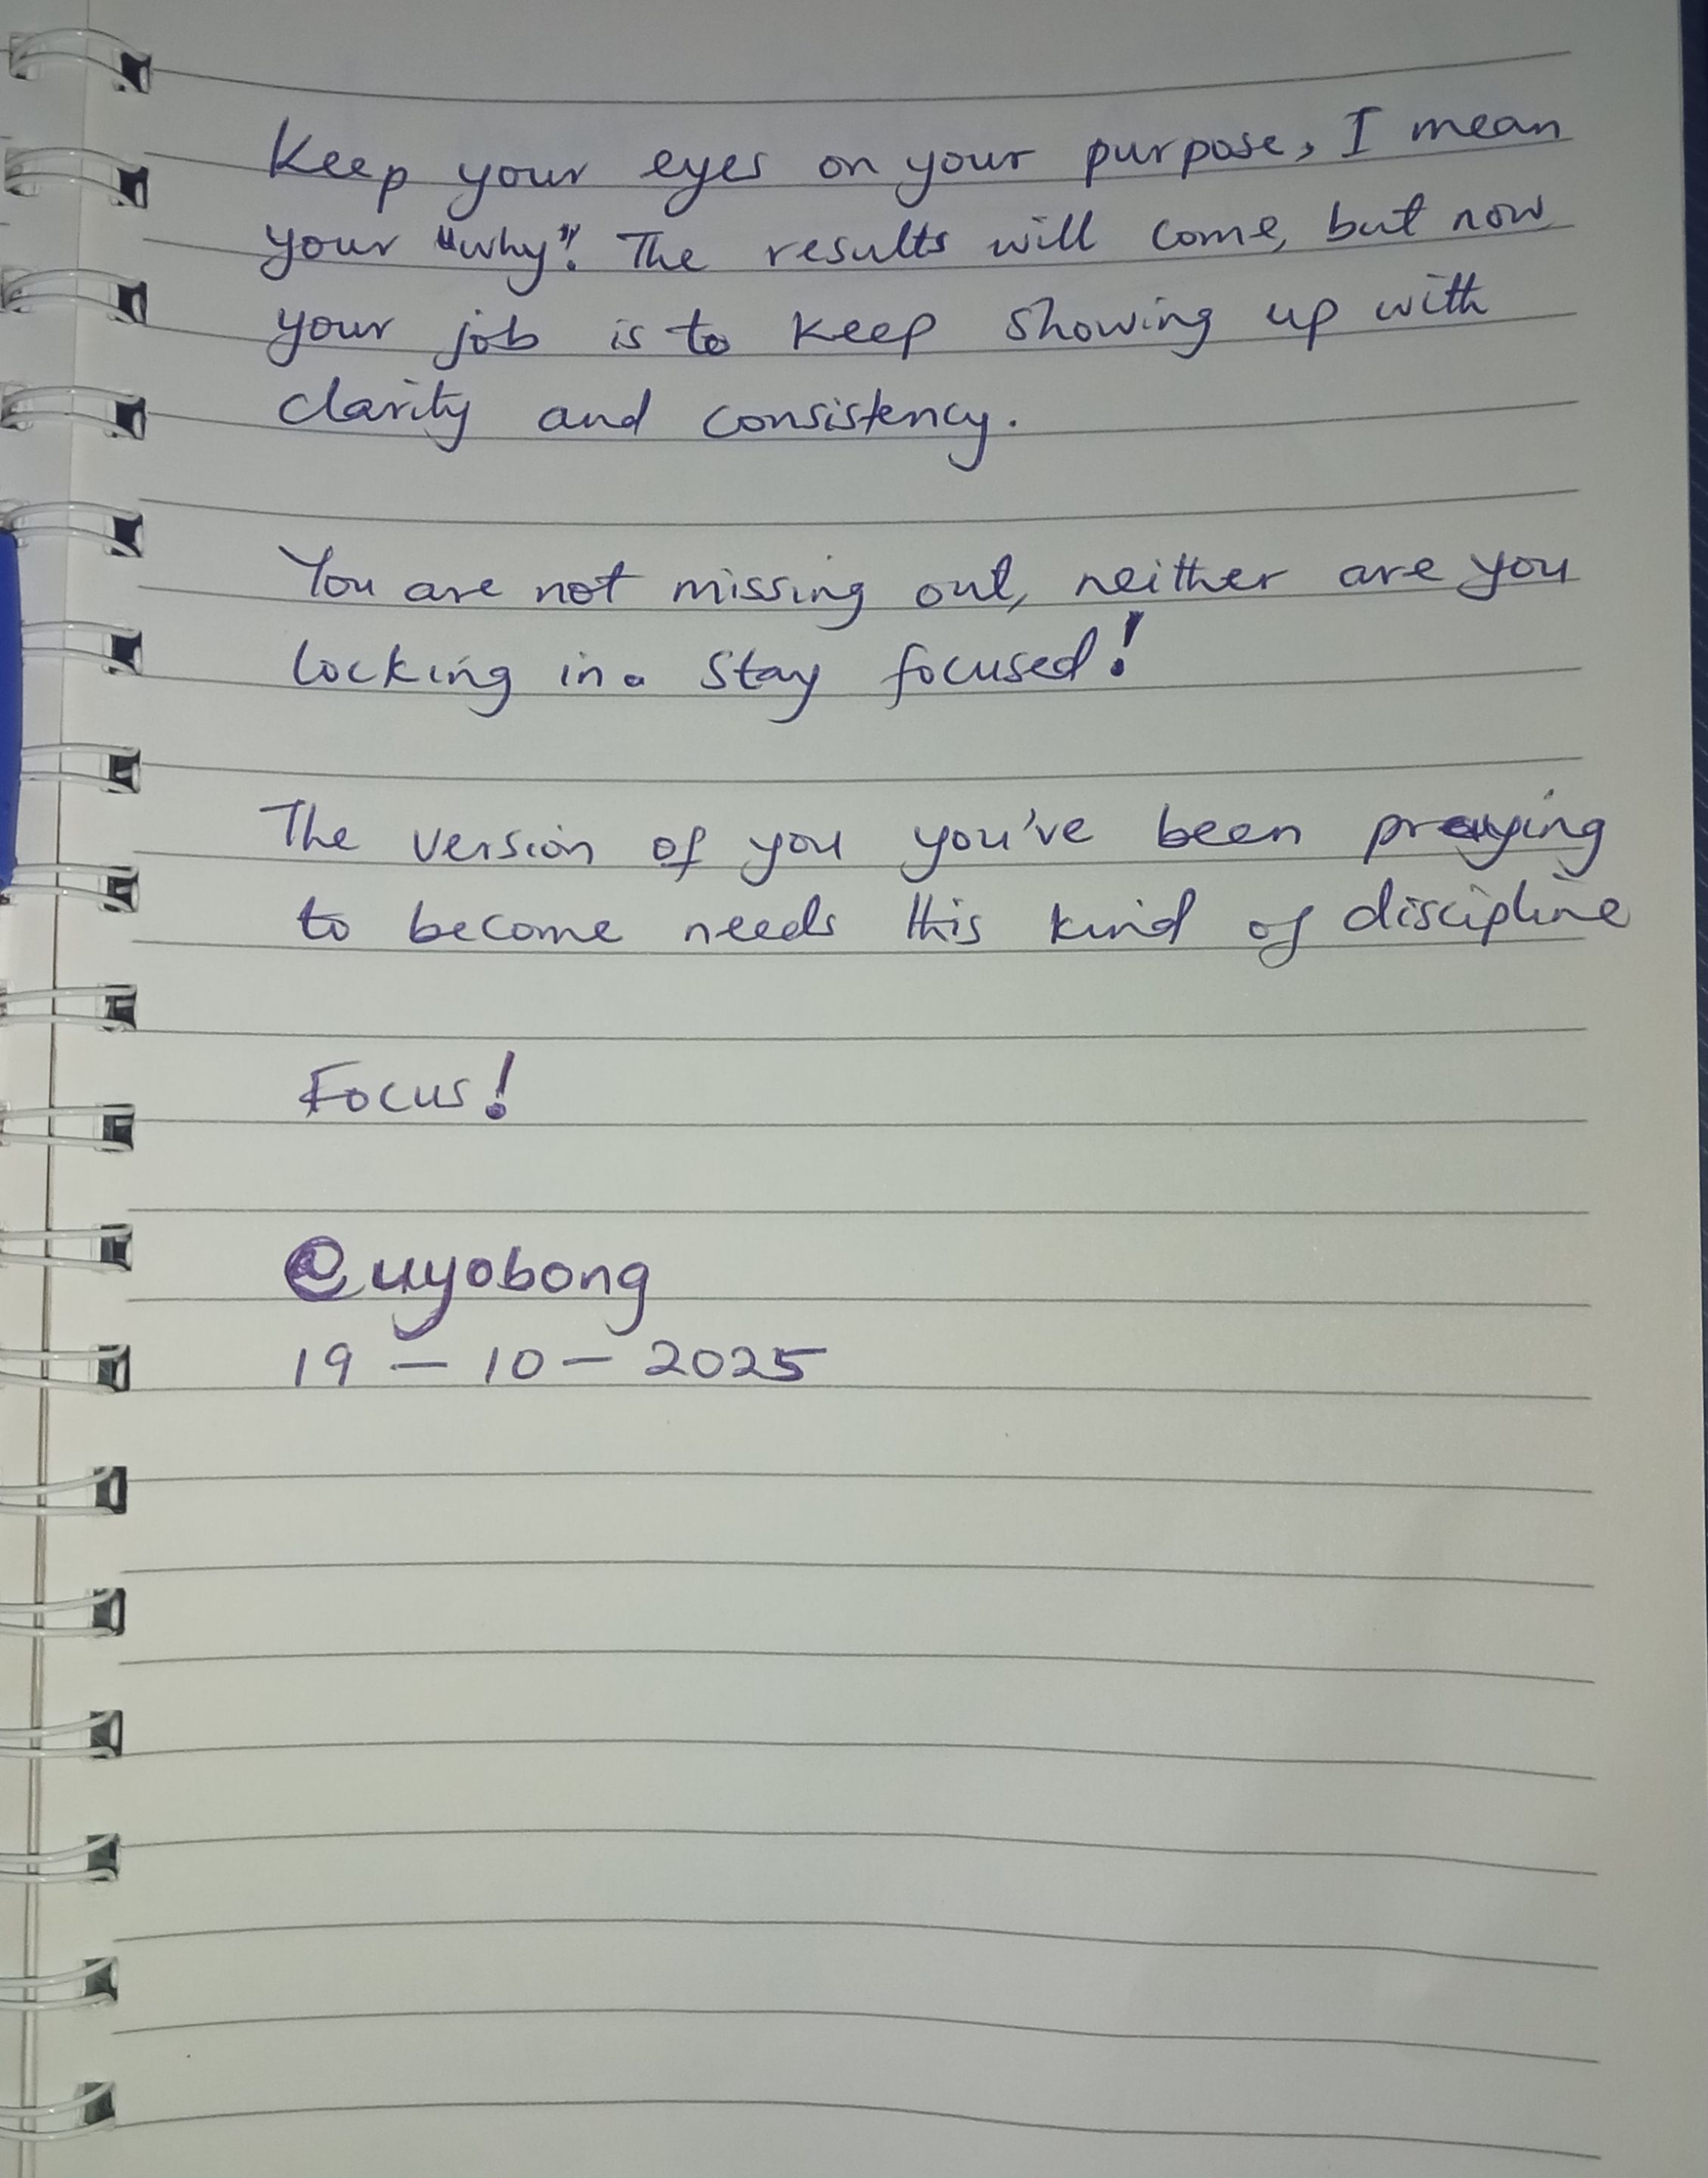 Keep your eyes on your purpose, I mean
your "why"! The results will come, but now
your job is to keep showing up with
clarity and consistency.
You are not missing out, neither are you
locking in. Stay focused!
The version of you you've been praying
to become needs this kind of discipline
Focus!
@uyobong
19 - 10 - 2025